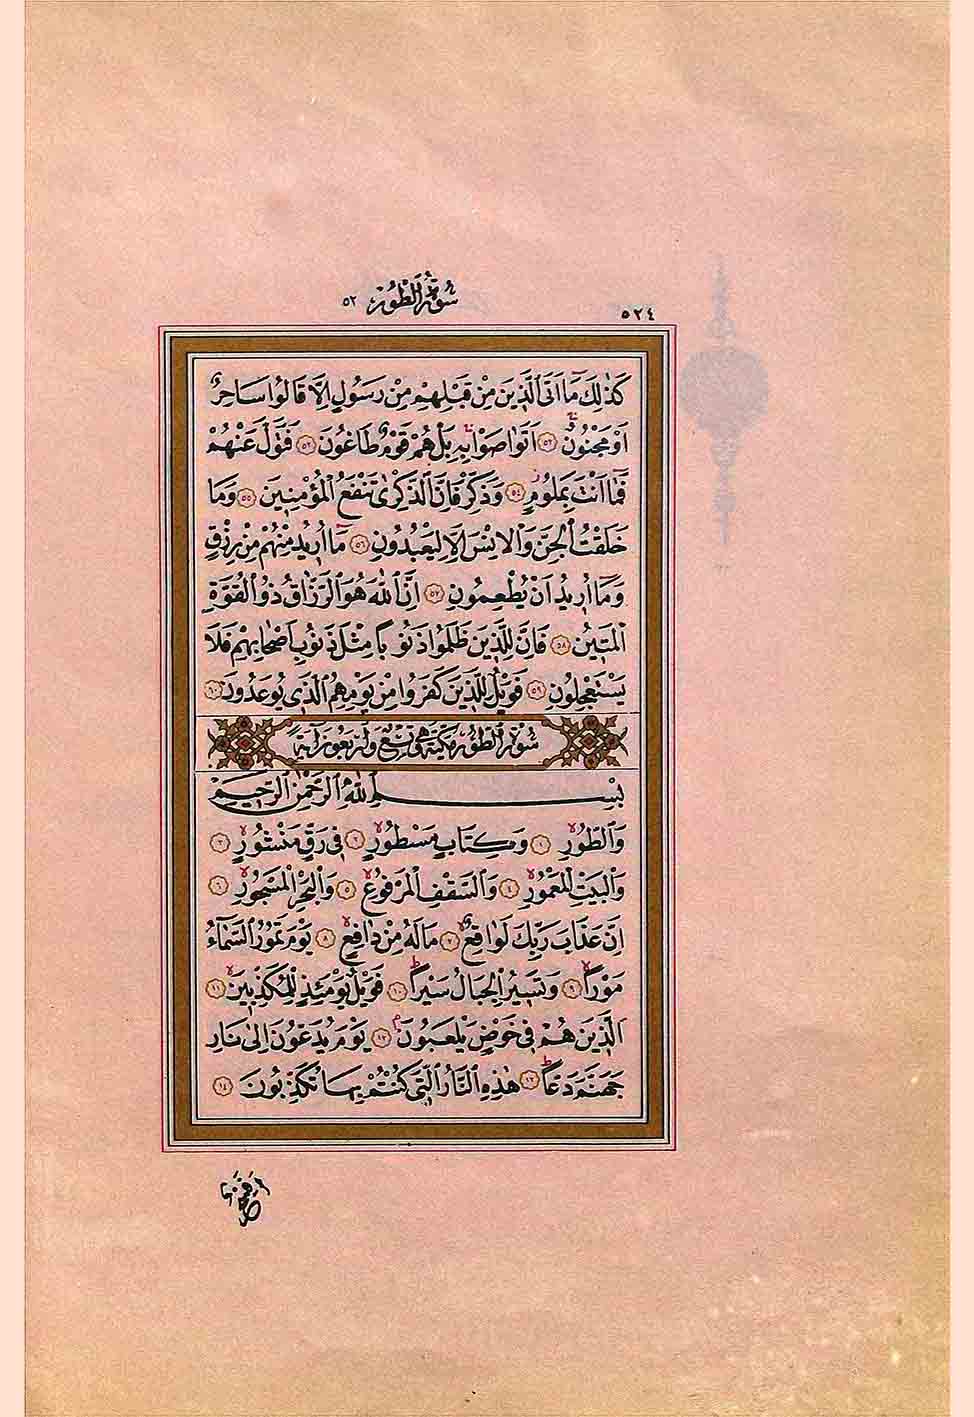 ٥٢٤
سُورَةُ الطُّورِ ٥٢
كَذٰلِكَ مَٓا اَتَى الَّذ۪ينَ مِنْ قَبْلِهِمْ مِنْ رَسُولٍ اِلَّا قَالُوا سَاحِرٌ
اَوْ مَجْنُونٌۚ ﴿٥٢﴾ اَتَوَاصَوْا بِه۪ۚ بَلْ هُمْ قَوْمٌ طَاغُونَ ﴿٥٣﴾ فَتَوَلَّ عَنْهُمْ
فَمَٓا اَنْتَ بِمَلُومٍۘ ﴿٥٤﴾ وَذَكِّرْ فَاِنَّ الذِّكْرٰى تَنْفَعُ الْمُؤْمِن۪ينَ ﴿٥٥﴾ وَمَا
خَلَقْتُ الْجِنَّ وَالْاِنْسَ اِلَّا لِيَعْبُدُونِ ﴿٥٦﴾ مَٓا اُر۪يدُ مِنْهُمْ مِنْ رِزْقٍ
وَمَٓا اُر۪يدُ اَنْ يُطْعِمُونِ ﴿٥٧﴾ اِنَّ اللّٰهَ هُوَ الرَّزَّاقُ ذُو الْقُوَّةِ
الْمَت۪ينُ ﴿٥٨﴾ فَاِنَّ لِلَّذ۪ينَ ظَلَمُوا ذَنُوبًا مِثْلَ ذَنُوبِ اَصْحَابِهِمْ فَلَا
يَسْتَعْجِلُونِ ﴿٥٩﴾ فَوَيْلٌ لِلَّذ۪ينَ كَفَرُوا مِنْ يَوْمِهِمُ الَّذ۪ي يُوعَدُونَ ﴿٦٠﴾
سُورَةُ الطُّورِ مَكِّيَّةٌ وَهِيَ تِسْعٌ وَاَرْبَعُونَ اٰيَةً
بِسْمِ اللّٰهِ الرَّحْمٰنِ الرَّح۪يمِ
وَالطُّورِۙ ﴿١﴾ وَكِتَابٍ مَسْطُورٍۙ ﴿٢﴾ ف۪ي رَقٍّ مَنْشُورٍۙ ﴿٣﴾
وَالْبَيْتِ الْمَعْمُورِۙ ﴿٤﴾ وَالسَّقْفِ الْمَرْفُوعِۙ ﴿٥﴾ وَالْبَحْرِ الْمَسْجُورِۙ ﴿٦﴾
اِنَّ عَذَابَ رَبِّكَ لَوَاقِعٌۙ ﴿٧﴾ مَا لَهُ مِنْ دَافِعٍۙ ﴿٨﴾ يَوْمَ تَمُورُ السَّمَٓاءُ
مَوْرًاۙ ﴿٩﴾ وَتَس۪يرُ الْجِبَالُ سَيْرًاۜ ﴿١٠﴾ فَوَيْلٌ يَوْمَئِذٍ لِلْمُكَذِّب۪ينَۙ ﴿١١﴾
اَلَّذ۪ينَ هُمْ ف۪ي خَوْضٍ يَلْعَبُونَۢ ﴿١٢﴾ يَوْمَ يُدَعُّونَ اِلٰى نَارِ
جَهَنَّمَ دَعًّاۜ ﴿١٣﴾ هٰذِهِ النَّارُ الَّت۪ي كُنْتُمْ بِهَا تُكَذِّبُونَ ﴿١٤﴾